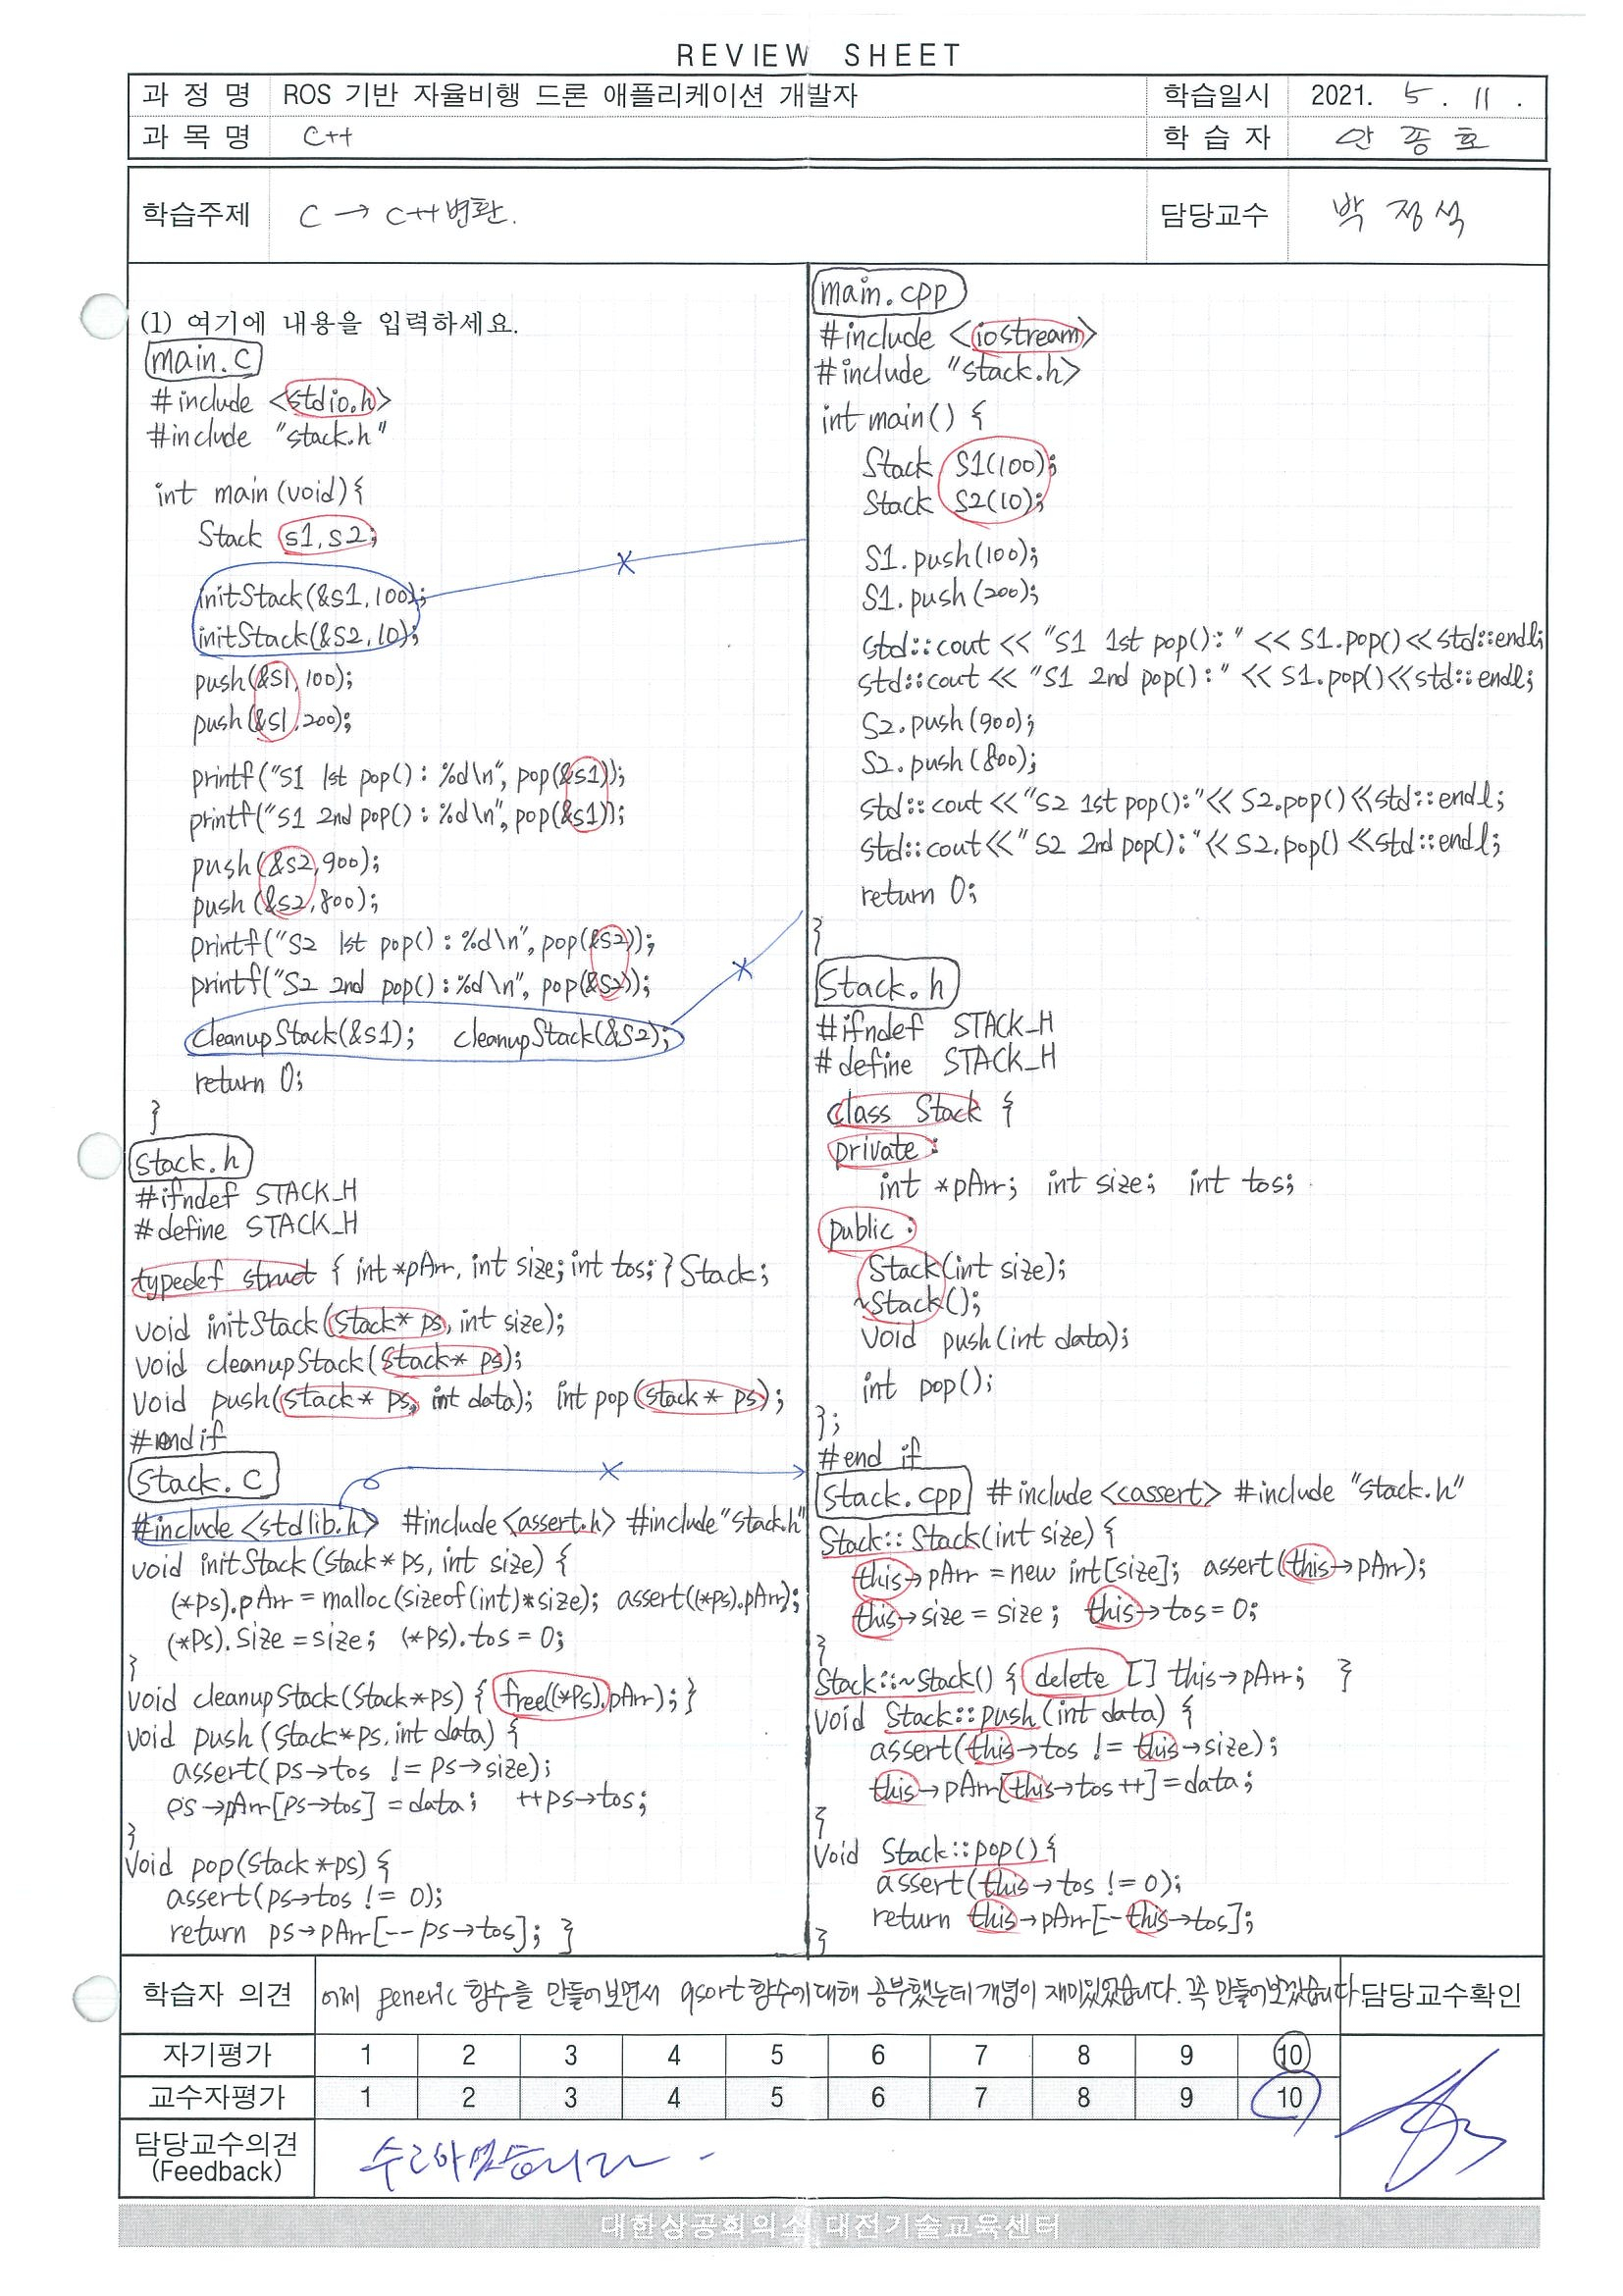 REVIEW SHEET
과 정 명 ROS 기반 자율비행 드론 애플리케이션 개발자 학습일시 2021. 5. 11.
과 목 명 C++ 학 습 자 안 종 호
학습주제 C → C++변환. 담당교수 박 정 석
(1) 여기에 내용을 입력하세요.
main.c
#include <stdio.h>
#include "stack.h"
int main(void){
Stack s1, s2;
initStack(&s1, 100);
initStack(&s2, 10);
push(&s1, 100);
push(&s1, 200);
printf("S1 1st pop() : %d\n", pop(&s1));
printf("S1 2nd pop() : %d\n", pop(&s1));
push(&s2, 900);
push(&s2, 800);
printf("S2 1st pop() : %d\n", pop(&s2));
printf("S2 2nd pop() : %d\n", pop(&s2));
cleanupStack(&s1); cleanupStack(&s2);
return 0;
}
stack.h
#ifndef STACK_H
#define STACK_H
typedef struct { int *pArr, int size; int tos; } Stack;
void initStack(Stack* ps, int size);
void cleanupStack(Stack* ps);
void push(Stack* ps, int data); int pop(stack* ps);
#endif
Stack.c
#include <stdlib.h> #include <assert.h> #include "stack.h"
void initStack(Stack*ps, int size) {
(*ps).pArr = malloc(sizeof(int)*size); assert((*ps).pArr);
(*ps).size = size; (*ps).tos = 0;
}
void cleanupStack(Stack*ps) { free((*ps).pArr); }
void push(Stack*ps, int data) {
assert(ps→tos != ps→size);
ps→pArr[ps→tos] = data; ++ps→tos;
}
void pop(Stack*ps) {
assert(ps→tos != 0);
return ps→pArr[--ps→tos]; }
main.cpp
#include <iostream>
#include "stack.h>
int main() {
Stack S1(100);
Stack S2(10);
S1.push(100);
S1.push(200);
std::cout << "S1 1st pop():" << S1.pop()<<std::endl;
std::cout << "S1 2nd pop():" << S1.pop()<<std::endl;
S2.push(900);
S2.push(800);
std::cout <<"S2 1st pop():"<< S2.pop()<<std::endl;
std::cout<<"S2 2nd pop():"<< S2.pop() <<std::endl;
return 0;
}
Stack.h
#ifndef STACK_H
#define STACK_H
class Stack {
private:
int *pArr; int size; int tos;
public:
Stack(int size);
~Stack();
void push(int data);
int pop();
};
#end if
Stack.cpp #include <cassert> #include "stack.h"
Stack::Stack(int size) {
this→pArr = new int[size]; assert(this→pArr);
this→size = size; this→tos = 0;
}
Stack::~Stack() { delete [] this→pArr; }
void Stack::push(int data) {
assert(this→tos != this→size);
this→pArr[this→tos++] = data;
}
Void Stack::pop() {
assert(this→tos != 0);
return this→pArr[--this→tos];
}
학습자 의견 어제 generic 함수를 만들어보면서 qsort 함수에 대해 공부했는데 개념이 재미있었습니다. 꼭 만들어보겠습니다. 담당교수확인
자기평가 1 2 3 4 5 6 7 8 9 10
교수자평가 1 2 3 4 5 6 7 8 9 10
담당교수의견
(Feedback) 수고하셨습니다.
대한상공회의소 대전기술교육센터